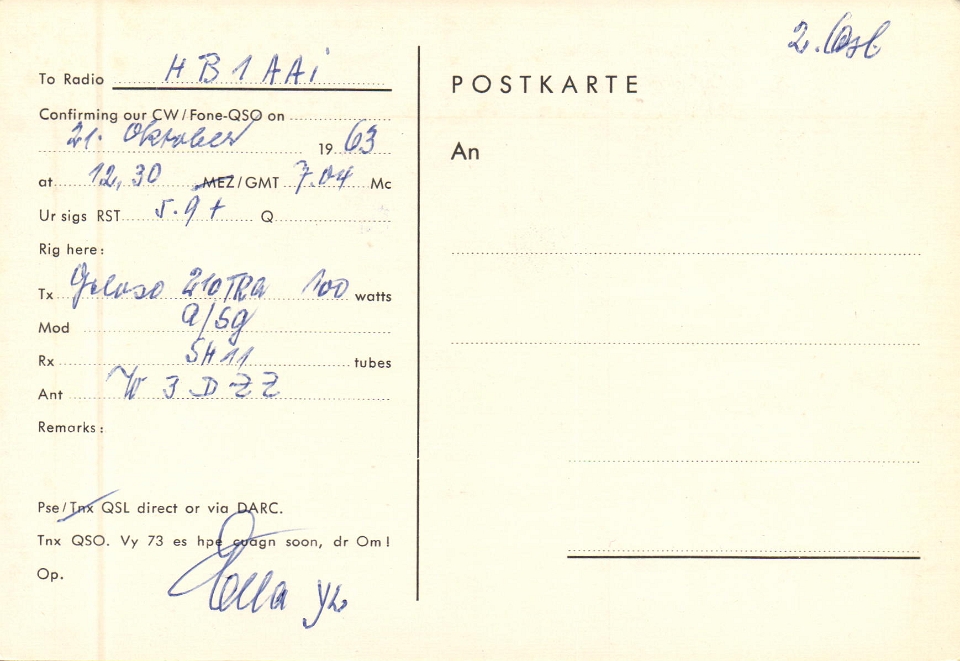 To Radio HB1AAi
Confirming our CW/Fone-QSO on
21. Oktober 1963
at 12,30 MEZ/GMT 7.04 Mc
Ur sigs RST 5.9+ Q
Rig here:
Tx Geloso 210TRa 100 watts
Mod a/sg
Rx SH11 tubes
Ant W3DZZ
Remarks:
Pse/Tnx QSL direct or via DARC.
Tnx QSO. Vy 73 es hpe cuagn soon, dr Om!
Op. YL
2. Qsl
POSTKARTE
An